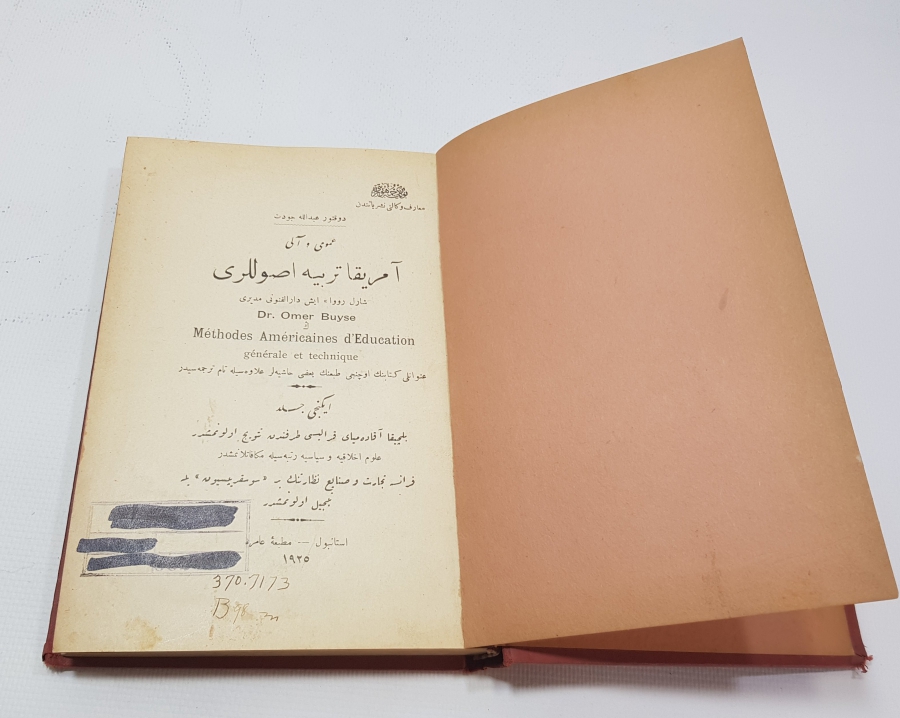 معارف وكالتی نشریاتندن
دوقتور عبدالله جودت
عمومی و آلی
آمریقا تربیه اصوللری
شارل رووا » ایش دارالفنونی مدیری
Dr. Omer Buyse
ڭ
Méthodes Américaines d'Education
générale et technique
عنوانلی كتابنك اوچنجی طبعنك بعضی حاشیه‌لر علاوه‌سیله تام ترجمه‌سیدر
ایكنجی جلد
بلچیقا آقاده‌میای قرالیسی طرفندن تتویج اولونمشدر
علوم اخلاقیه و سیاسیه رتبه‌سیله مكافاتلانمشدر
فرانسه تجارت و صنایع نظارتنك بر « سوسقریپسیون » یله
تبجیل اولونمشدر
استانبول — مطبعۀ عامره
١٩٢٥
370.7173
B98